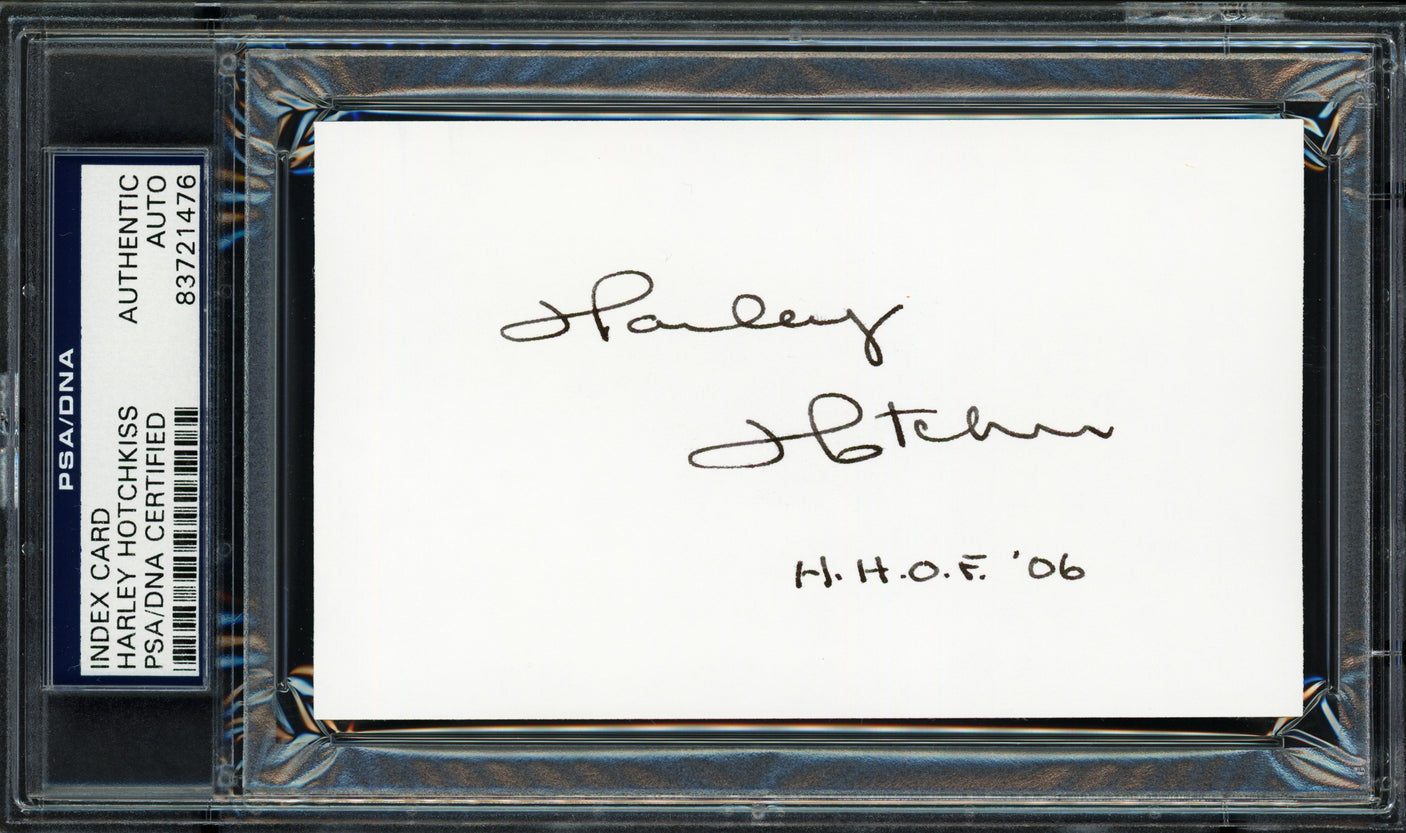 PSA/DNA
INDEX CARD AUTHENTIC
HARLEY HOTCHKISS AUTO
PSA/DNA CERTIFIED 83721476
Harley
Hotchkiss
H.H.O.F. '06